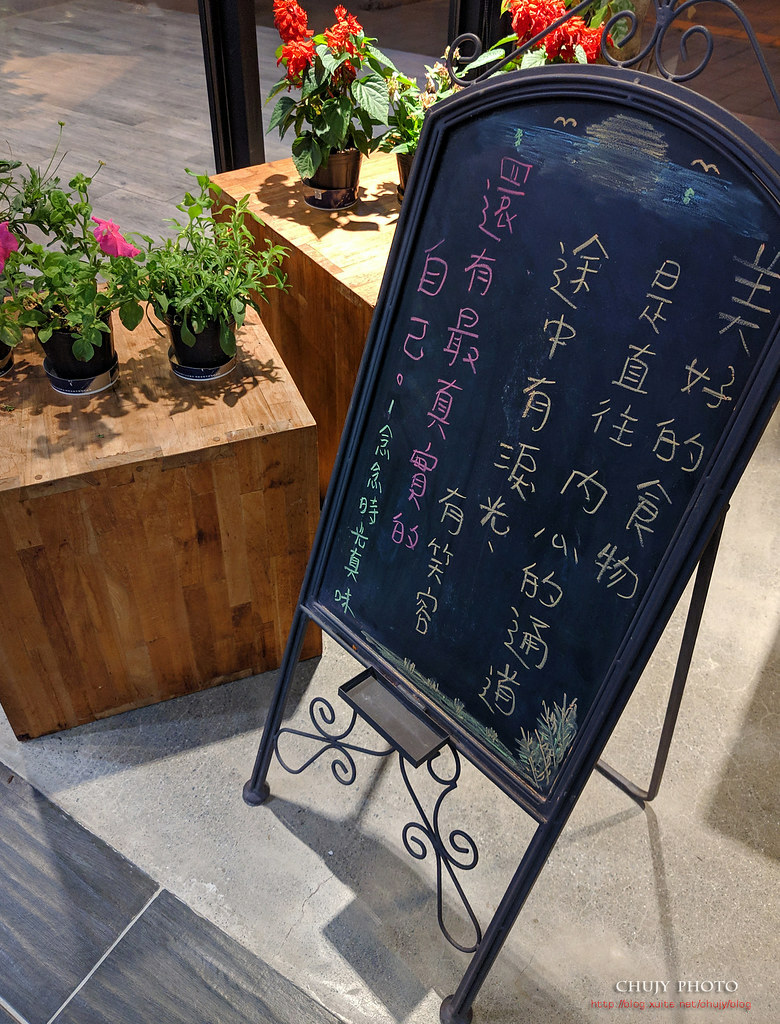 美好的食物
是直往內心的通道
途中有淚光、有笑容
還有最真實的
自己。
－念念時光真味
CHUJY PHOTO
http://blog.xuite.net/chujy/blog